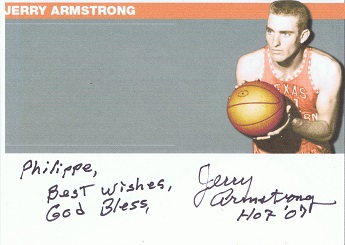 JERRY ARMSTRONG
TEXAS
Philippe,
Best wishes,
God Bless,
Jerry
Armstrong
HOF '07